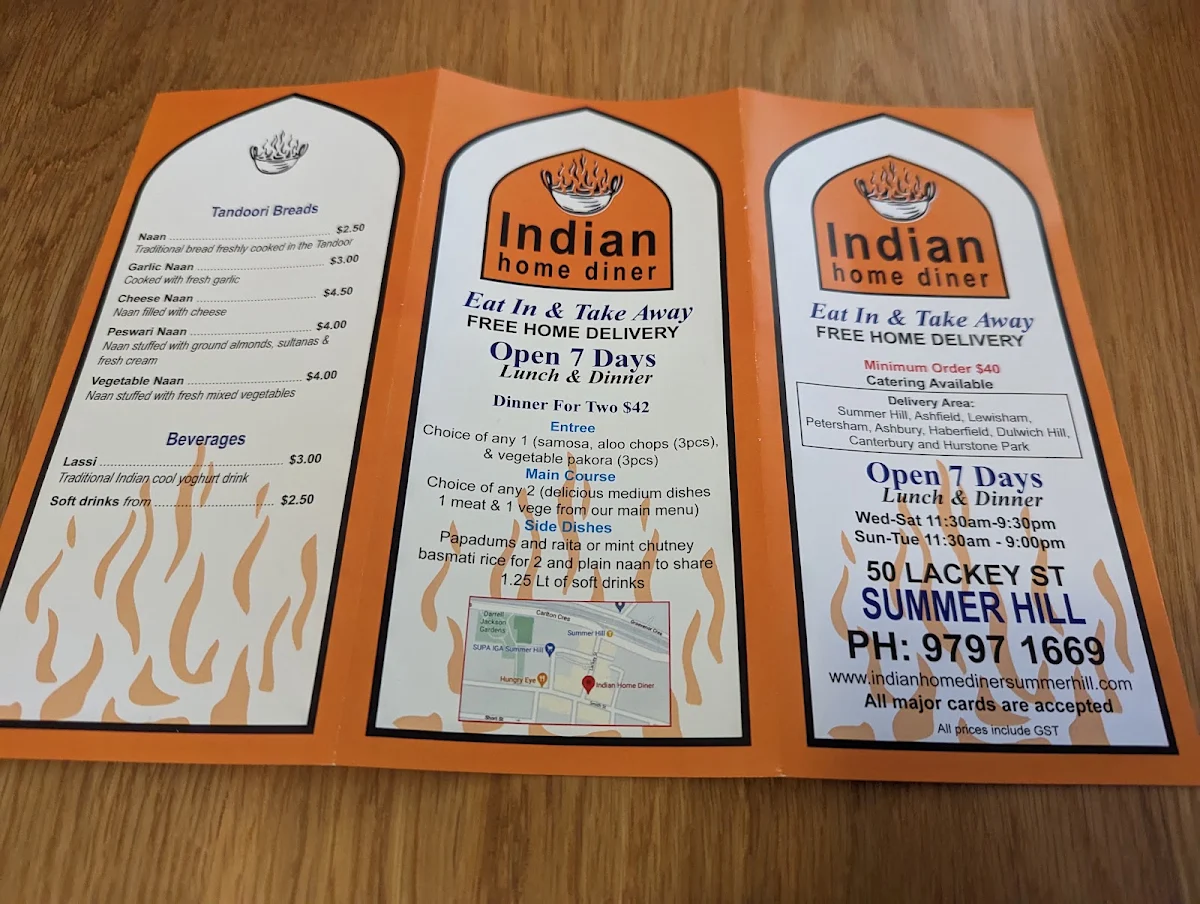 Tandoori Breads
Naan ........ $2.50
Traditional bread freshly cooked in the Tandoor
Garlic Naan ........ $3.00
Cooked with fresh garlic
Cheese Naan ........ $4.50
Naan filled with cheese
Peswari Naan ........ $4.00
Naan stuffed with ground almonds, sultanas &
fresh cream
Vegetable Naan ........ $4.00
Naan stuffed with fresh mixed vegetables
Beverages
Lassi ........ $3.00
Traditional Indian cool yoghurt drink
Soft drinks from ........ $2.50
Indian
home diner
Eat In & Take Away
FREE HOME DELIVERY
Open 7 Days
Lunch & Dinner
Dinner For Two $42
Entree
Choice of any 1 (samosa, aloo chops (3pcs),
& vegetable pakora (3pcs)
Main Course
Choice of any 2 (delicious medium dishes
1 meat & 1 vege from our main menu)
Side Dishes
Papadums and raita or mint chutney
basmati rice for 2 and plain naan to share
1.25 Lt of soft drinks
Darrell
Jackson
Gardens
Carlton Cres
Grosvenor Cres
Summer Hill
SUPA IGA Summer Hill
Hungry Eye
Indian Home Diner
Smith St
Short St
Indian
home diner
Eat In & Take Away
FREE HOME DELIVERY
Minimum Order $40
Catering Available
Delivery Area:
Summer Hill, Ashfield, Lewisham,
Petersham, Ashbury, Haberfield, Dulwich Hill,
Canterbury and Hurstone Park
Open 7 Days
Lunch & Dinner
Wed-Sat 11:30am-9:30pm
Sun-Tue 11:30am - 9:00pm
50 LACKEY ST
SUMMER HILL
PH: 9797 1669
www.indianhomedinersummerhill.com
All major cards are accepted
All prices include GST